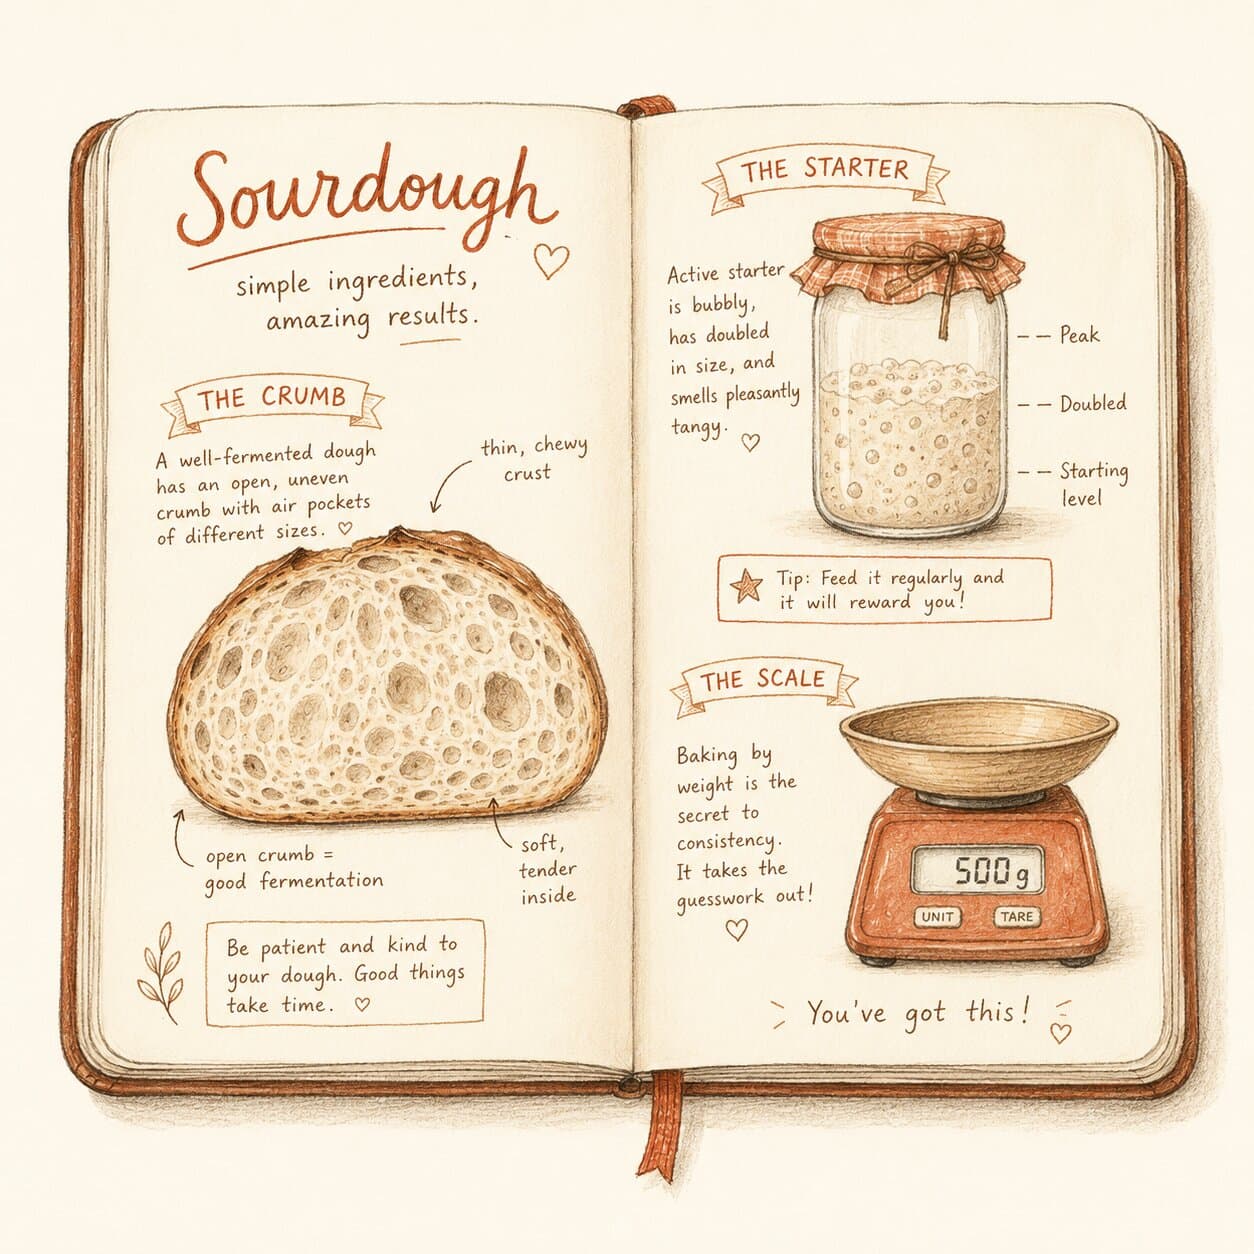 Sourdough
simple ingredients,
amazing results.
THE CRUMB
A well-fermented dough
has an open, uneven
crumb with air pockets
of different sizes.
thin, chewy
crust
open crumb =
good fermentation
soft,
tender
inside
Be patient and kind to
your dough. Good things
take time.
THE STARTER
Active starter
is bubbly,
has doubled
in size, and
smells pleasantly
tangy.
Peak
Doubled
Starting
level
Tip: Feed it regularly and
it will reward you!
THE SCALE
Baking by
weight is the
secret to
consistency.
It takes the
guesswork out!
500g
UNIT
TARE
You've got this!